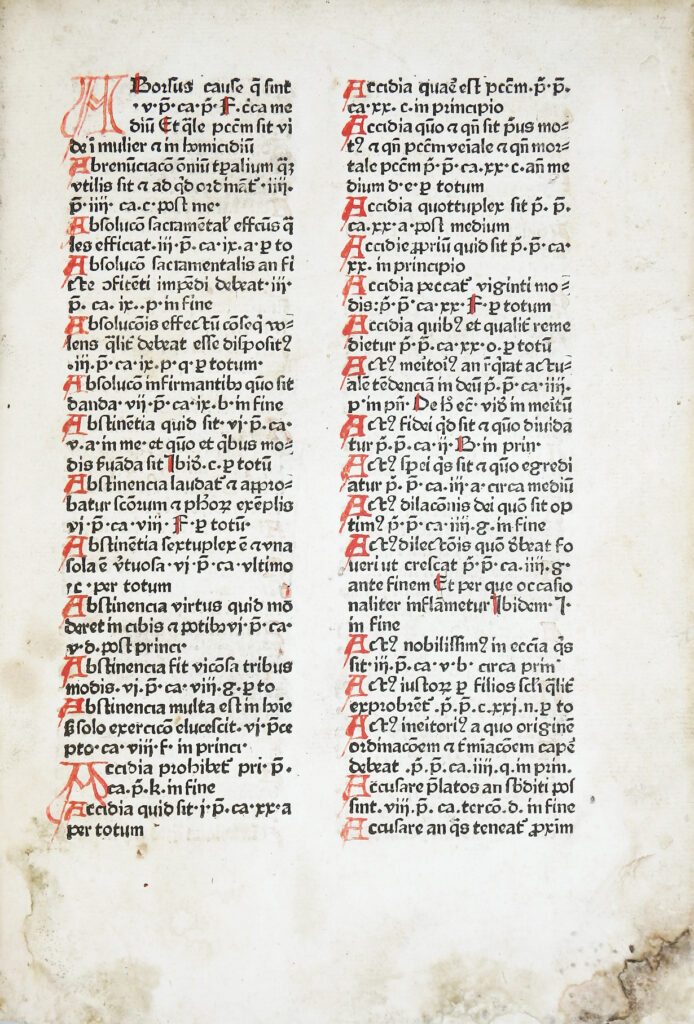 ABorsus cause q̄ sint
·v·p̄·ca·p̄· F·c̄ca me
diū Et q̄le pccm̄ sit vi
de ī mulier ⁊ in homicidiū
Abrenūciac̄o oniū tp̄alium qꝫ
vtilis sit ⁊ ad qd̄ ordinat᷑·iiij.
p̄·iiij· ca·c·post me·
Absoluc̄o sacramētal̓ effcūs q̄
les efficiat·iij·p̄·ca·ix·a·ꝑ to
Absoluc̄o sacramentalis an fi
cte ꝯfitēti impedi debeat·iij·
p̄· ca· ix··p·in fine
Absoluc̄ois effectū cōseq̄ vo⸗
lens q̄lit̓ debeat esse disposit⁹
·iij·p̄·ca·ix·p·q·ꝑ totum·
Absoluc̄o infirmantib⁹ quo sit
danda·vij·p̄·ca·ix·b·in fine
Abstinētia quid sit·vj·p̄·ca·
v·a·in me·et quo et qb̄us mo⸗
dis fuāda sit Ibid̄·c·ꝑ totū
Abstinēcia laudat᷑ ⁊ appro⸗
batur scōrum ⁊ ph̄orꝝ exēplis
vj·p̄·ca·viij· F·ꝑ totū·
Abstinētia sextuplex ē ⁊ vna
sola ē v̓tuosa·vj·p̄·ca·vltimo
·c·per totum
Abstinencia virtus quid mō
deret in cibis ⁊ potib⁹ vj·p̄·ca·
v·d·post princi·
Abstinencia fit vicōsa tribus
modis·vj·p̄·ca·viij·g·ꝑ to
Abstinencia multa est in hoīe
ß solo exercicō elucescit·vj·p̄ce
pto·ca·viij·f·in princi·
Accidia prohibet᷑ pri·p̄·
ca·p̄·k·in fine
Accidia quid sit·j·p̄·ca·xx·a
per totum
Accidia quae est pccm̄·p̄·p̄·
ca·xx·c·in principio
Accidia quo ⁊ qn̄ sit p̄us mo⸗
t⁹ ⁊ qn̄ pccm̄ veīale ⁊ qn̄ mor⸗
tale pccm̄ p̄·p̄·ca·xx·c·an̄ me
dium d·e·ꝑ totum
Accidia quottuplex sit p̄·p̄·
ca·xx·a·post medium
Accidie ꝓprium quid sit p̄·p̄·ca·
xx·in principio
Accidia peccat᷑ viginti mo⸗
dis:p̄·p̄·ca·xx·F·ꝑ totum
Accidia quib⁹ et qualit̓ reme
dietur p̄·p̄·ca·xx·o·ꝑ totū
Act⁹ meitoi⁹ an rq̄rat actu⸗
alē tēdenciā in deū p̄·p̄·ca·iiij·
p·in pn̄· De h̄ ec̄·vid̄ in meitū
Act⁹ fidei qd̄ sit ⁊ quo diuida
tur p̄·p̄·ca·ij·B·in prin·
Act⁹ spei q̄s sit ⁊ quo egredi
atur p̄·p̄·ca·iij·a·circa mediū
Act⁹ dilac̄onis dei quo sit op
tim⁹ p̄·p̄·ca·iiij·g·in fine
Act⁹ dilect̄ois quo d̓beat fo
ueri ut crescat p̄·p̄·ca·iiij·g·
ante finem Et per que occasio
naliter inflāmetur Ibidem·I·
in fine
Act⁹ nobilissim⁹ in ecc̄ia q̄s
sit·iij·p̄·ca·v·b·circa prin
Act⁹ iustorꝝ ꝑ filios scl̓i q̄lit̓
exprobrēt᷑·p̄·p̄·c·xxj·n·ꝑ to
Act⁹ ineitori⁹ a quo originē
ordinac̄oem ⁊ t̓miac̄oem capē
debeat·p̄·p̄·ca·iiij·q·in prin·
Accusare p̄latos an sb̄diti pos
sint·viij·p̄·ca·terc̄o·d·in fine
Accusare an q̄s teneat᷑ ꝓxim